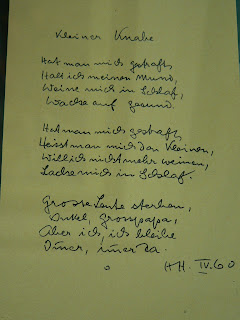 Kleiner Knabe
Hat man mich gestraft,
Halt ich meinen Mund,
Weine mich in Schlaf,
Wache auf gesund.
Hat man mich gestraft,
Heisst man mich den Kleinen,
Will ich nicht mehr weinen,
Lache mich in Schlaf.
Grosse Leute sterben,
Onkel, Grosspapa,
Aber ich, ich bleibe
Imer, imer da.
HH. IV. 60